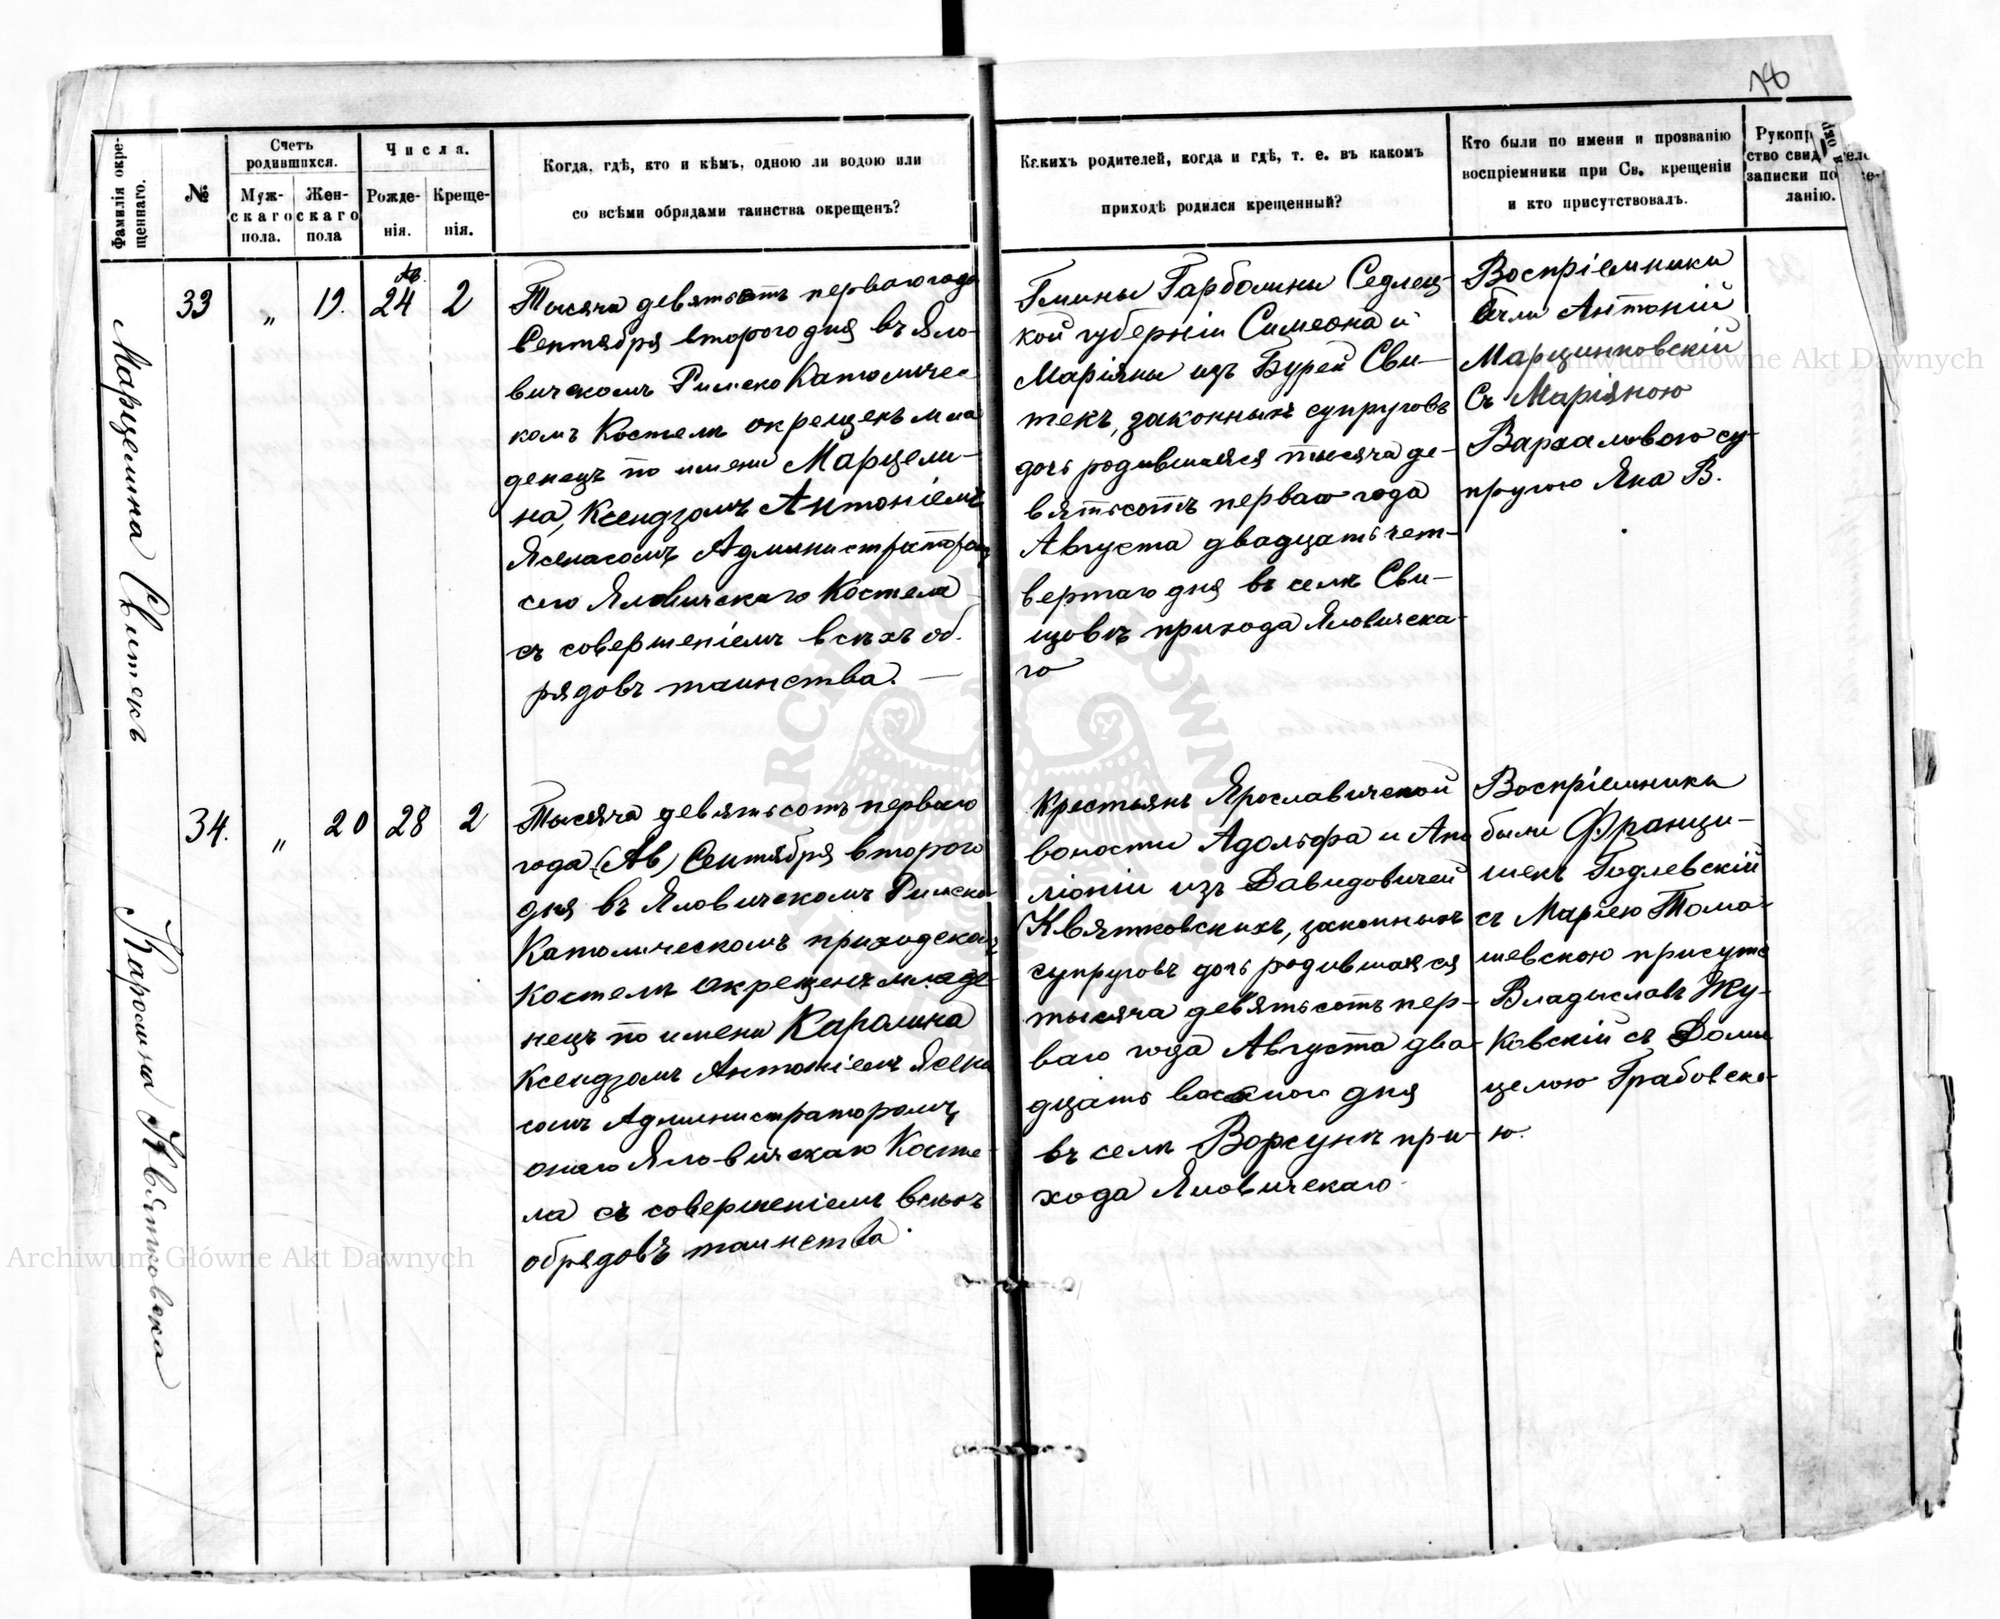 18
Фамилія окре-
щеннаго.
№
Счетъ
родившихся.
Муж-
скаго
пола.
Жен-
скаго
пола
Числа.
Рожде-
нія.
Креще-
нія.
Когда, гдѣ, кто и кѣмъ, одною ли водою или
со всѣми обрядами таинства окрещенъ?
Какихъ родителей, когда и гдѣ, т. е. въ какомъ
приходѣ родился крещенный?
Кто были по имени и прозванію
воспріемники при Св. крещеніи
и кто присутствовалъ.
Рукопр
ство свид
записки по
ланію.
Марцелина Свитекъ
33
„
19.
Ав.
24
2
Тысяча девятьсотъ перваго года
Сентября втораго дня въ Яло-
вичскомъ Римско Католичес-
комъ Костелѣ окрещенъ мла
денецъ по имени Марцели-
на, Ксендзомъ Антоніемъ
Ясенасомъ Администраторомъ
сего Яловичскаго Костела
съ совершеніемъ всѣхъ об.
рядовъ таинства. —
Гмины Гарболины Седлец-
кой губерніи Симеона и
Маріяны изъ Бурей Сви-
текъ, законныхъ супруговъ
дочь родившаяся тысяча де-
вятьсотъ перваго года
Августа двадцать чет-
вертаго дня въ селѣ Сви-
щовъ прихода Яловичска-
го
Воспріемники
были Антоній
Марцинковскій
Съ Маріяною
Вархаловою су-
пругою Яна В.
Каролина Квятковска
34.
„
20
28
2
Тысяча девятьсотъ перваго
года (Ав) Сентября втораго
дня въ Яловичскомъ Римско
Католическомъ приходскомъ
Костелѣ окрещенъ младе-
нецъ по имени Каролина
Ксендзомъ Антоніемъ Ясена
сомъ Администраторомъ
онаго Яловичскаго Косте-
ла съ совершеніемъ всѣхъ
обрядовъ таинства.
Крестьянъ Ярославичской
волости Адольфа и Апо
лоніи изъ Давидовичей
Квятковскихъ, законныхъ
супруговъ дочь родившаяся
тысяча девятьсотъ пер-
ваго года Августа два-
дцать восьмого дня
въ селѣ Ворсунъ при-
хода Яловичскаго.
Воспріемники
были Франци-
шекъ Годлевскій
съ Маріею Тома-
шевскою присутс
Владыславъ Жу-
ковскій съ Доми
целою Грабовско-
ю.
Archiwum Główne Akt Dawnych
Archiwum Główne Akt Dawnych